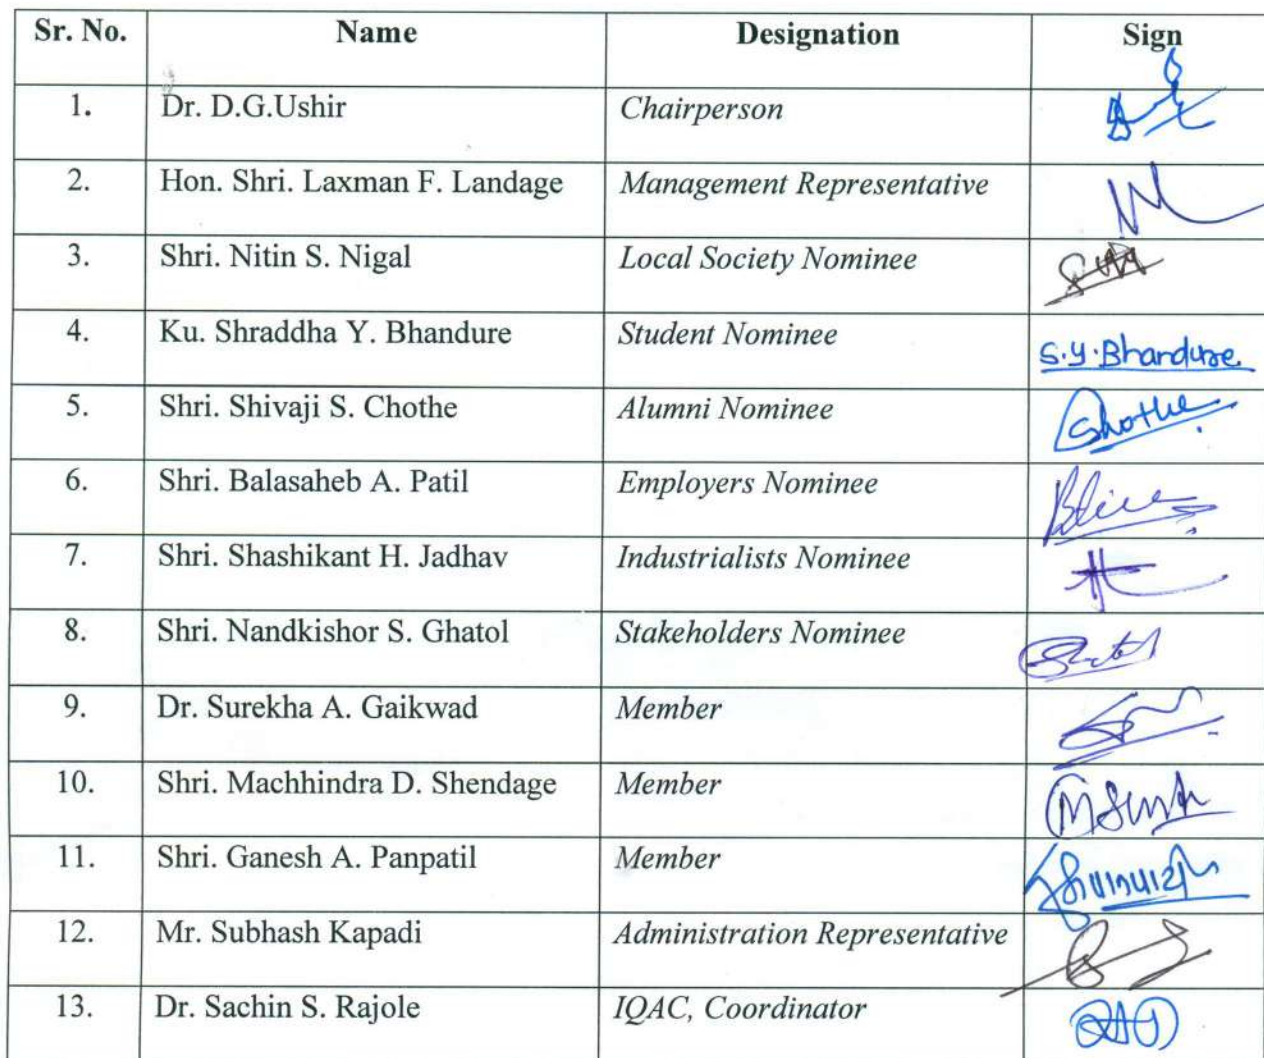 Sr. No. Name Designation Sign
1. Dr. D.G.Ushir Chairperson
2. Hon. Shri. Laxman F. Landage Management Representative
3. Shri. Nitin S. Nigal Local Society Nominee
4. Ku. Shraddha Y. Bhandure Student Nominee S.Y.Bhandure
5. Shri. Shivaji S. Chothe Alumni Nominee
6. Shri. Balasaheb A. Patil Employers Nominee
7. Shri. Shashikant H. Jadhav Industrialists Nominee
8. Shri. Nandkishor S. Ghatol Stakeholders Nominee
9. Dr. Surekha A. Gaikwad Member
10. Shri. Machhindra D. Shendage Member
11. Shri. Ganesh A. Panpatil Member
12. Mr. Subhash Kapadi Administration Representative
13. Dr. Sachin S. Rajole IQAC, Coordinator